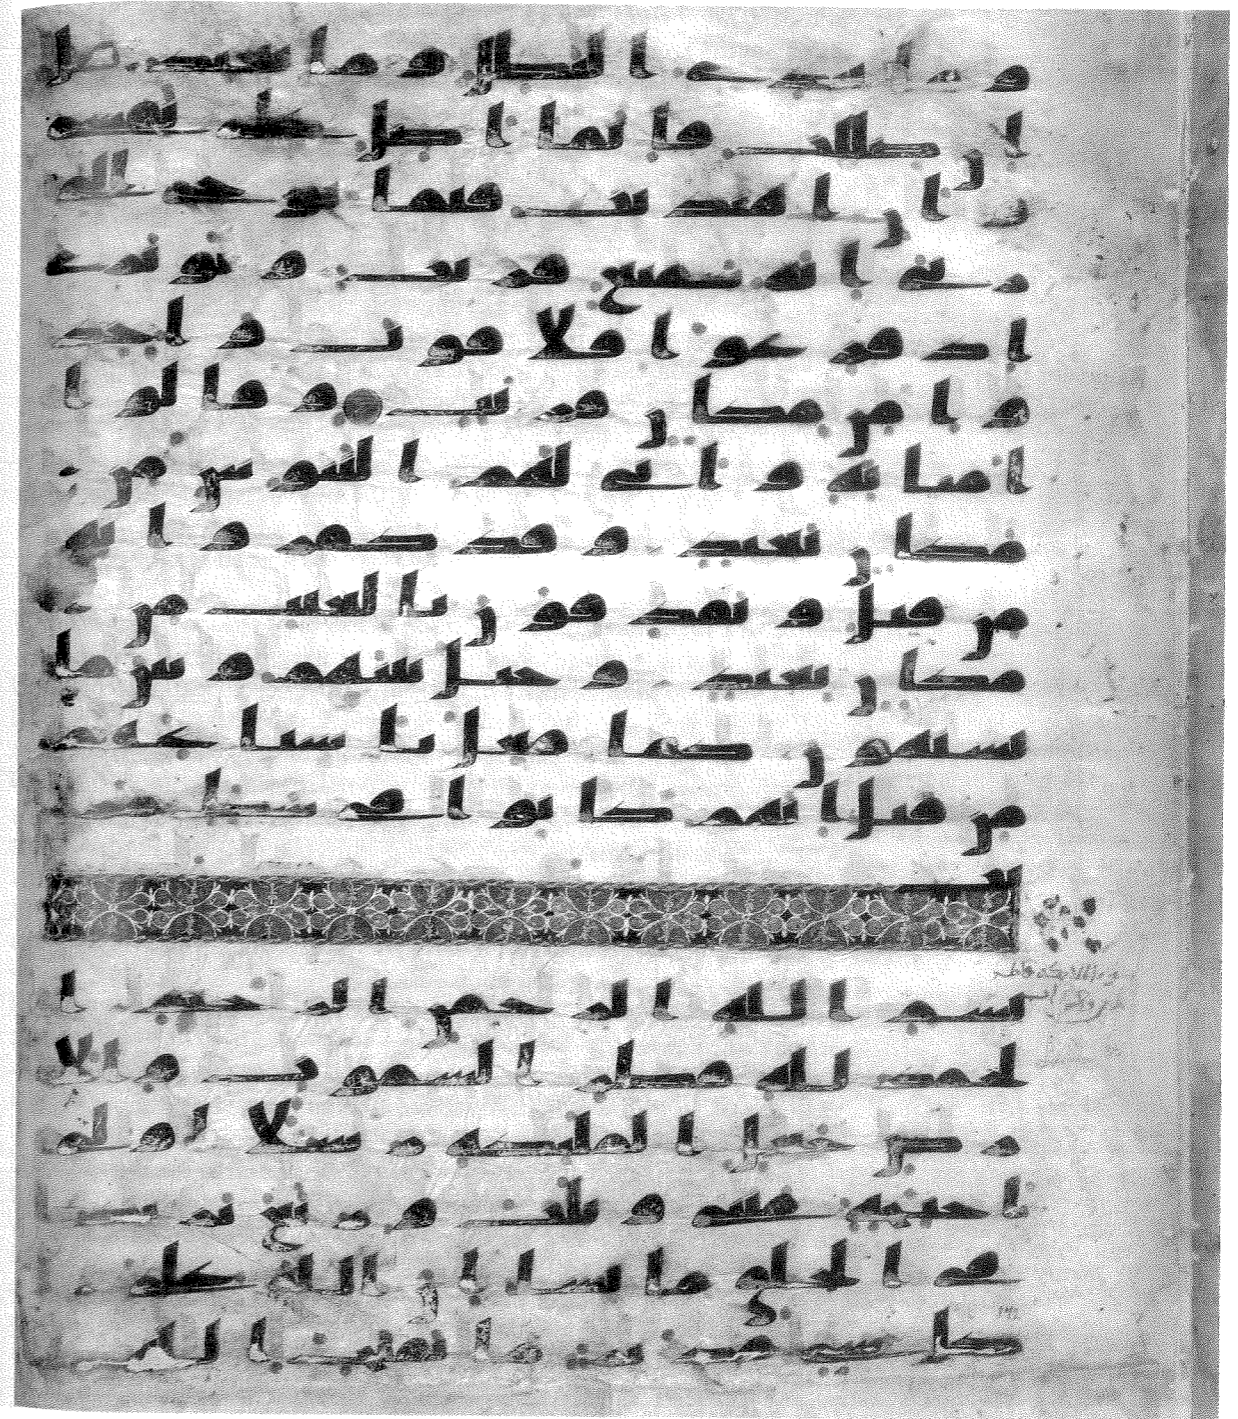 و ما يبدئ البطل و ما يعيد قل
ان ضللت فانما اضل على نفسى
و ان اهتديت فبما يوحى الى
ربى انه سميع قريب و لو ترى
اذ فزعوا فلا فوت و اخذ
وا من مكان قريب و قالوا ا
منا به و انى لهم التناوش من
مكان بعيد و قد كفروا به
من قبل و يقذفون بالغيب من
مكان بعيد و حيل بينهم و بين ما
يشتهون كما فعل باشياعهم
من قبل انهم كانوا فى شك مر
يب
بسم الله الرحمن الرحيم ا
لحمد لله فاطر السموت و الا
رض جاعل الملئكة رسلا اولى
اجنحة مثنى و ثلث و ربع يزيد
فى الخلق ما يشا ان الله على
كل شى قدير ما يفتح الله
سورة الملائكة فاطر